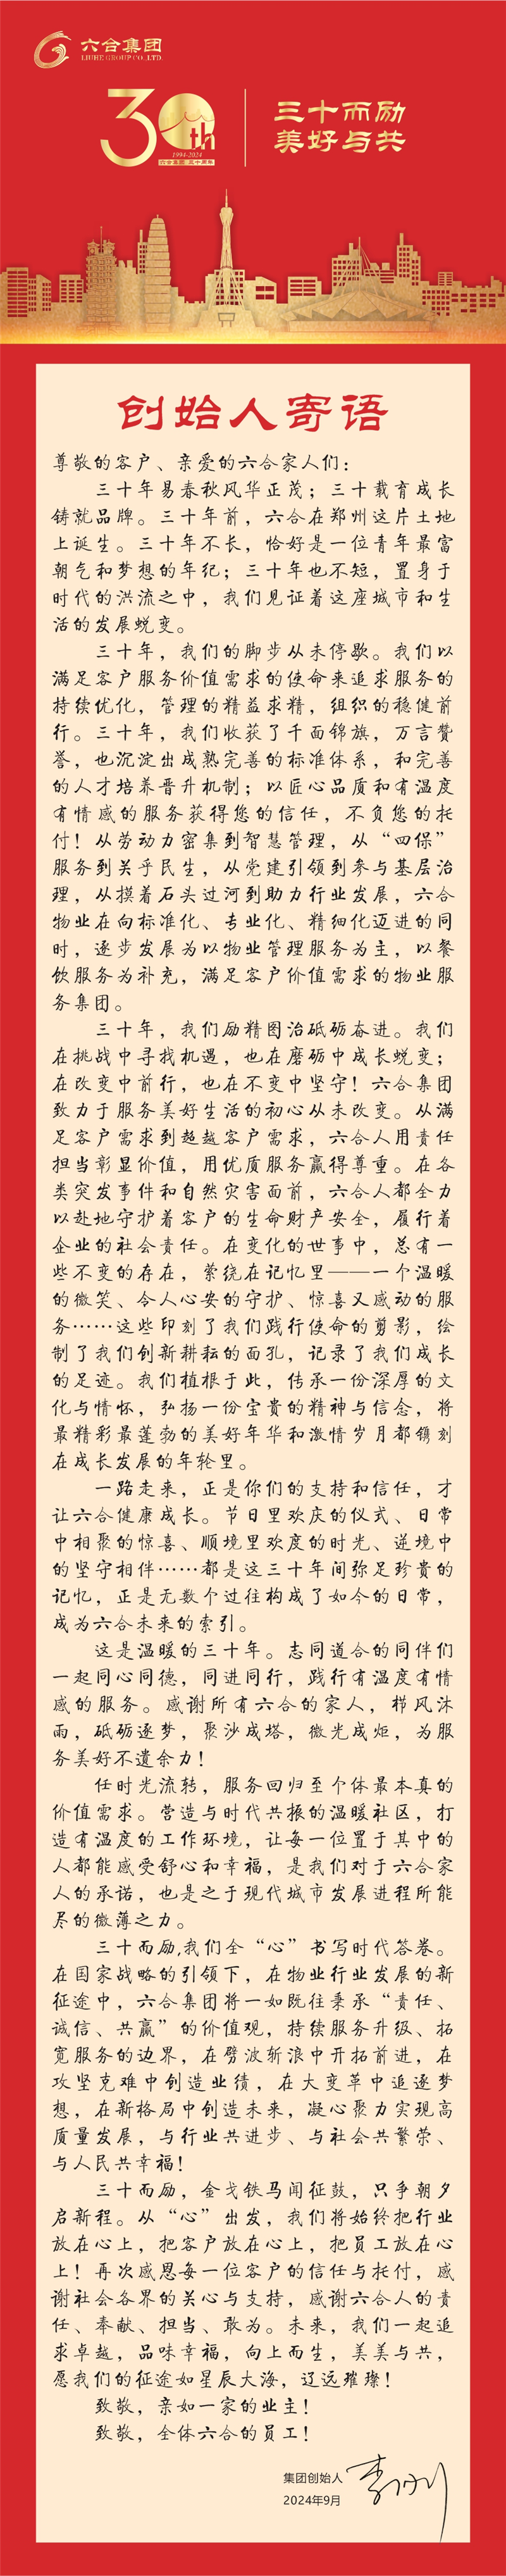 六合集团
LIUHE GROUP CO.,LTD.
30th
1994-2024
六合集团 三十周年
三十而励
美好与共
创始人寄语
尊敬的客户、亲爱的六合家人们：
三十年易春秋风华正茂；三十载育成长
铸就品牌。三十年前，六合在郑州这片土地
上诞生。三十年不长，恰好是一位青年最富
朝气和梦想的年纪；三十年也不短，置身于
时代的洪流之中，我们见证着这座城市和生
活的发展蜕变。
三十年，我们的脚步从未停歇。我们以
满足客户服务价值需求的使命来追求服务的
持续优化，管理的精益求精，组织的稳健前
行。三十年，我们收获了千面锦旗，万言赞
誉，也沉淀出成熟完善的标准体系，和完善
的人才培养晋升机制；以匠心品质和有温度
有情感的服务获得您的信任，不负您的托
付！从劳动力密集到智慧管理，从“四保”
服务到关乎民生，从党建引领到参与基层治
理，从摸着石头过河到助力行业发展，六合
物业在向标准化、专业化、精细化迈进的同
时，逐步发展为以物业管理服务为主，以餐
饮服务为补充，满足客户价值需求的物业服
务集团。
三十年，我们励精图治砥砺奋进。我们
在挑战中寻找机遇，也在磨砺中成长蜕变；
在改变中前行，也在不变中坚守！六合集团
致力于服务美好生活的初心从未改变。从满
足客户需求到超越客户需求，六合人用责任
担当彰显价值，用优质服务赢得尊重。在各
类突发事件和自然灾害面前，六合人都全力
以赴地守护着客户的生命财产安全，履行着
企业的社会责任。在变化的世事中，总有一
些不变的存在，萦绕在记忆里——一个温暖
的微笑、令人心安的守护、惊喜又感动的服
务……这些印刻了我们践行使命的剪影，绘
制了我们创新耕耘的面孔，记录了我们成长
的足迹。我们植根于此，传承一份深厚的文
化与情怀，弘扬一份宝贵的精神与信念，将
最精彩最蓬勃的美好年华和激情岁月都镌刻
在成长发展的年轮里。
一路走来，正是你们的支持和信任，才
让六合健康成长。节日里欢庆的仪式、日常
中相聚的惊喜、顺境里欢度的时光、逆境中
的坚守相伴……都是这三十年间弥足珍贵的
记忆，正是无数个过往构成了如今的日常，
成为六合未来的索引。
这是温暖的三十年。志同道合的同伴们
一起同心同德，同进同行，践行有温度有情
感的服务。感谢所有六合的家人，栉风沐
雨，砥砺逐梦，聚沙成塔，微光成炬，为服
务美好不遗余力！
任时光流转，服务回归至个体最本真的
价值需求。营造与时代共振的温暖社区，打
造有温度的工作环境，让每一位置于其中的
人都能感受舒心和幸福，是我们对于六合家
人的承诺，也是之于现代城市发展进程所能
尽的微薄之力。
三十而励,我们全“心”书写时代答卷。
在国家战略的引领下，在物业行业发展的新
征途中，六合集团将一如既往秉承“责任、
诚信、共赢”的价值观，持续服务升级、拓
宽服务的边界，在劈波斩浪中开拓前进，在
攻坚克难中创造业绩，在大变革中追逐梦
想，在新格局中创造未来，凝心聚力实现高
质量发展，与行业共进步、与社会共繁荣、
与人民共幸福！
三十而励，金戈铁马闻征鼓，只争朝夕
启新程。从“心”出发，我们将始终把行业
放在心上，把客户放在心上，把员工放在心
上！再次感恩每一位客户的信任与托付，感
谢社会各界的关心与支持，感谢六合人的责
任、奉献、担当、敢为。未来，我们一起追
求卓越，品味幸福，向上而生，美美与共，
愿我们的征途如星辰大海，辽远璀璨！
致敬，亲如一家的业主！
致敬，全体六合的员工！
集团创始人
李刚
2024年9月